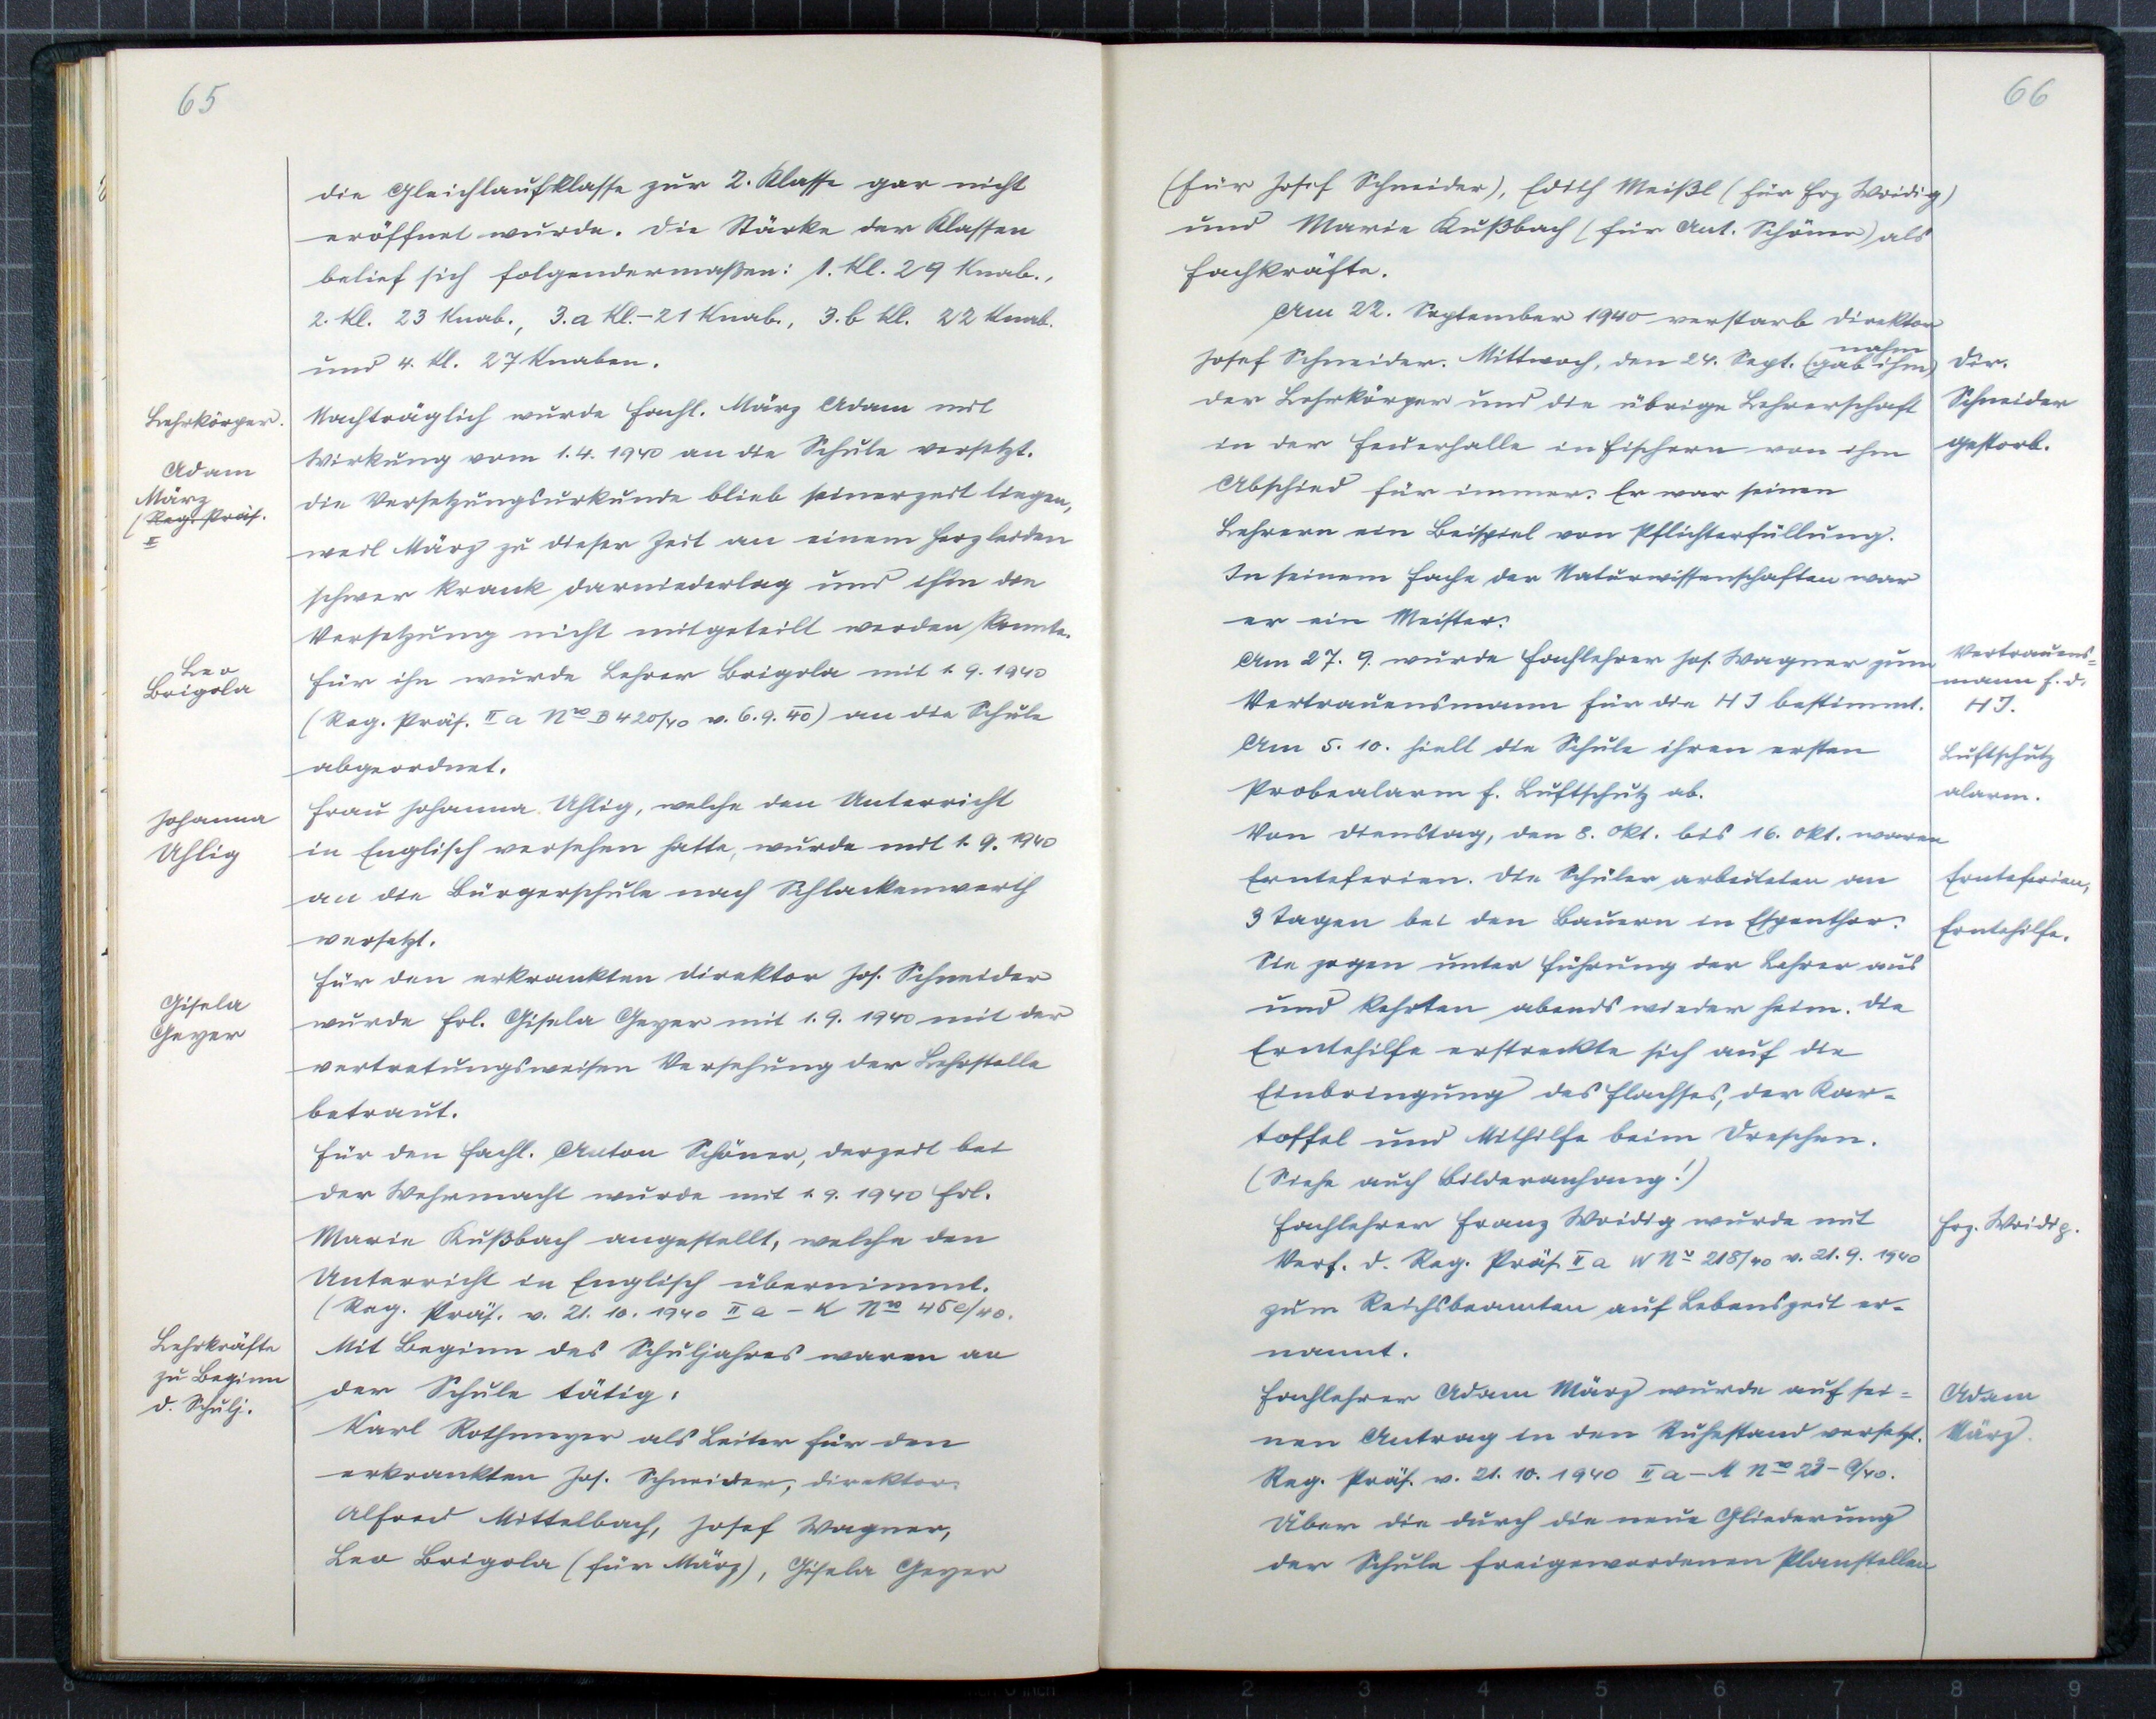 65
die Gleichlaufklasse zur 2. Klasse gar nicht
eröffnet wurde. Die Stärke der Klassen
belief sich folgendermaßen: 1. Kl. 29 Knab.,
2. Kl. 23 Knab., 3.a Kl.–21 Knab., 3.b Kl. 22 Knab.
und 4. Kl. 27 Knaben.
Lehrkörper.
Nachträglich wurde Fachl. März Adam mit
Wirkung vom 1.4. 1940 an die Schule versetzt.
Adam
März
(Reg. Präs.
II
Die Versetzungsurkunde blieb seinerzeit liegen,
weil März zu dieser Zeit an einem Herzleiden
schwer krank darniederlag und ihm die
Versetzung nicht mitgeteilt werden konnte.
Leo
Brigola
Für ihn wurde Lehrer Brigola mit 1.9.1940
(Reg. Präs. II a Nro B 420/40 v. 6.9.40) an die Schule
abgeordnet.
Johanna
Uhlig
Frau Johanna Uhlig, welche den Unterricht
in Englisch versehen hatte, wurde mit 1.9.1940
an die Bürgerschule nach Schlackenwerth
versetzt.
Gisela
Geyer
Für den erkrankten Direktor Jos. Schneider
wurde Frl. Gisela Geyer mit 1.9. 1940 mit der
vertretungsweisen Versehung der Lehrstelle
betraut.
Für den Fachl. Anton Schöner, derzeit bei
der Wehrmacht wurde mit 1.9.1940 Frl.
Marie Kußbach angestellt, welche den
Unterricht in Englisch übernimmt.
(Reg. Präs. v. 21. 10. 1940 II a – K Nro 45e/40.
Lehrkräfte
zu Beginn
d. Schulj.
Mit Beginn des Schuljahres waren an
der Schule tätig:
Karl Rothmeyer als Leiter für den
erkrankten Jos. Schneider, Direktor.
Alfred Mittelbach, Josef Wagner,
Leo Brigola (für März), Gisela Geyer
66
(für Josef Schneider), Edith Meißl (für Frz Weidig)
und Marie Kußbach (für Ant. Schöner) als
Fachkräfte.
Am 22. September 1940 verstarb Direktor
nahm
Josef Schneider. Mittwoch, den 24. Sept. (gab ihm)
der Lehrkörper und die übrige Lehrerschaft
in der Feuerhalle in Fischern von ihm
Abschied für immer. Er war seinen
Lehrern ein Beispiel von Pflichterfüllung.
In seinem Fache der Naturwissenschaften war
er ein Meister.
Dir.
Schneider
gestorb.
Am 27. 9. wurde Fachlehrer Jos. Wagner zum
Vertrauensmann für die HJ bestimmt.
Vertrauens=
mann f. d.
HJ.
Am 5. 10. hielt die Schule ihren ersten
Probealarm f. Luftschutz ab.
Luftschutz
alarm.
Von Dienstag, den 8. Okt. bis 16. Okt. waren
Ernteferien. Die Schüler arbeiteten an
3 Tagen bei den Bauern in Espenthor.
Sie zogen unter Führung der Lehrer aus
und kehrten abends wieder heim. Die
Erntehilfe erstreckte sich auf die
Einbringung des Flachses, der Kar-
toffel und Mithilfe beim Dreschen.
(Siehe auch Bilderanhang!)
Ernteferien,
Erntehilfe.
Fachlehrer Franz Weidig wurde mit
Verf. d. Reg. Präs. II a W Nr 218/40 v. 21.9.1940
zum Reichsbeamten auf Lebenszeit er-
nannt.
Frz. Weidig.
Fachlehrer Adam März wurde auf sei=
nen Antrag in den Ruhestand versetzt.
Reg. Präs. v. 21. 10. 1940 II a – M Nro 23–e/40.
Adam
März.
Über die durch die neue Gliederung
der Schule freigewordenen Planstellen
8
1 2 3 4 5 6 7 8 9